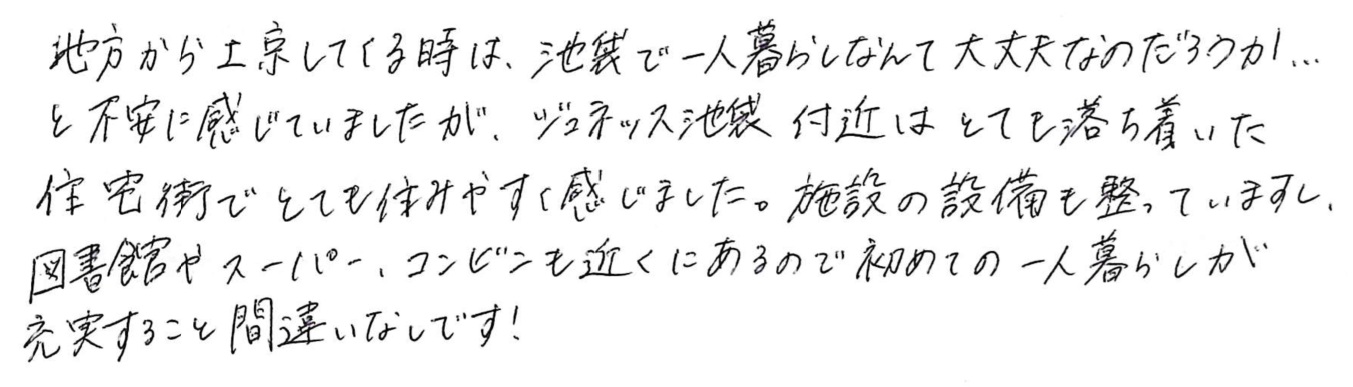 地方から上京してくる時は、池袋で一人暮らしなんて大丈夫なのだろうか…
と不安に感じていましたが、ジュネッス池袋付近はとても落ち着いた
住宅街でとても住みやすく感じました。施設の設備も整っていますし、
図書館やスーパー、コンビニも近くにあるので初めての一人暮らしが
充実すること間違いなしです!